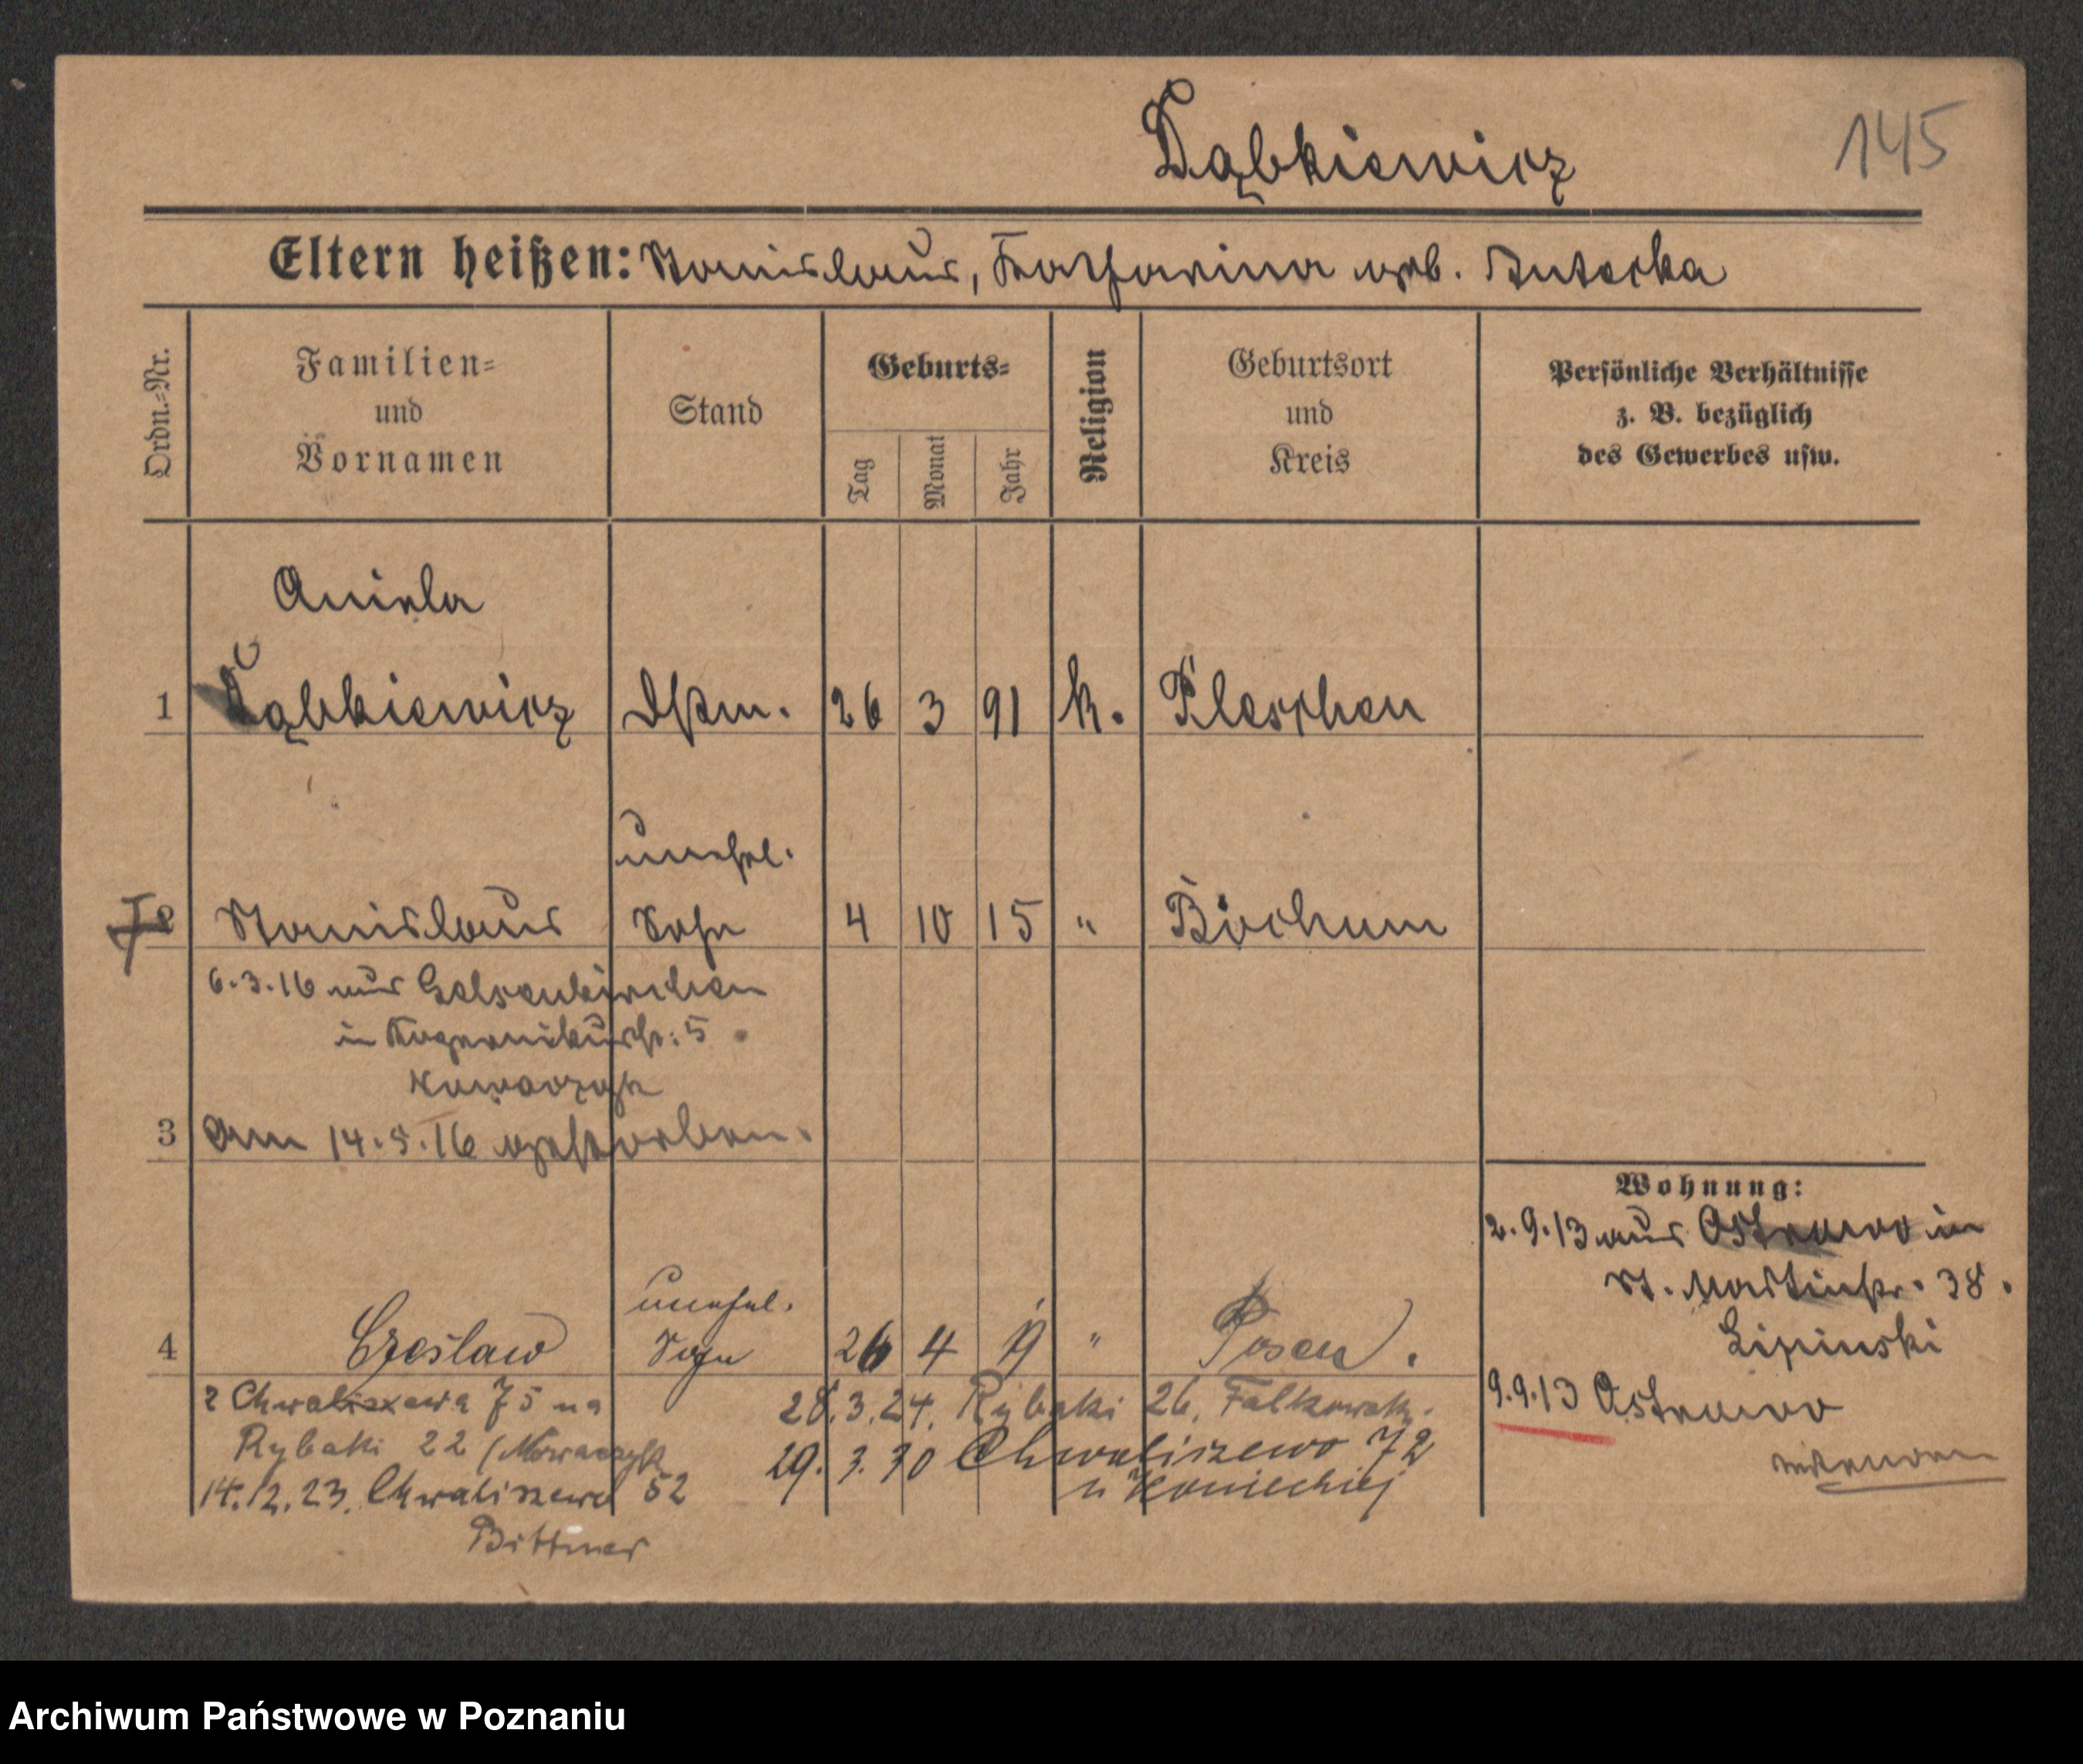 Dąbkiewicz 145
Eltern heißen: Stanislaus, Katharina geb. Antecka
Ordn.-Nr.
Familien-
und
Vornamen
Stand
Geburts-
Tag
Monat
Jahr
Religion
Geburtsort
und
Kreis
Persönliche Verhältnisse
z. B. bezüglich
des Gewerbes usw.
Aniela
1 Dąbkiewicz 26 3 91 k. Pleschen
unehel.
2 Stanislaus Sohn 4 10 15 " Bochum
6.3.16 aus Gelsenkirchen
in Kopernikusstr: 5
Nowaczyk
3 am 14.5.16 gestorben.
Wohnung:
2.9.13 aus Ostrowo in
St. Martinstr. 38.
Lipinski
9.9.13 Ostrowo
unehel.
4 Czeslaw Sohn 26 4 19 " Posen.
z Chwaliszewa 75 na
Rybaki 22 (Nowaczyk
14.12.23. Chwaliszewo 52
Bittner
28.3.24. Rybaki 26. Falkowsk.
29.3.30 Chwaliszewo 72
u Koniecznej
Archiwum Państwowe w Poznaniu